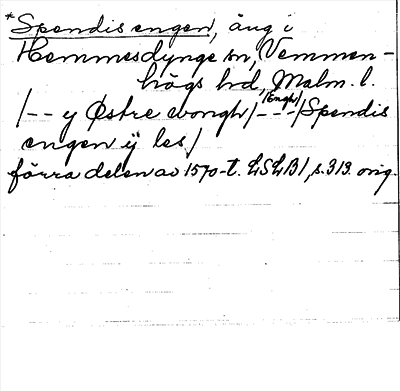 *Spendis engen, äng i
Hemmesdynge sn, Vemmen-
högs hd, Malm. l.
/-- y Østre wongh/---/(Engh)/Spendis
engen ÿ les/
förra delen av 1570-t. LSLB1, s. 313. orig.